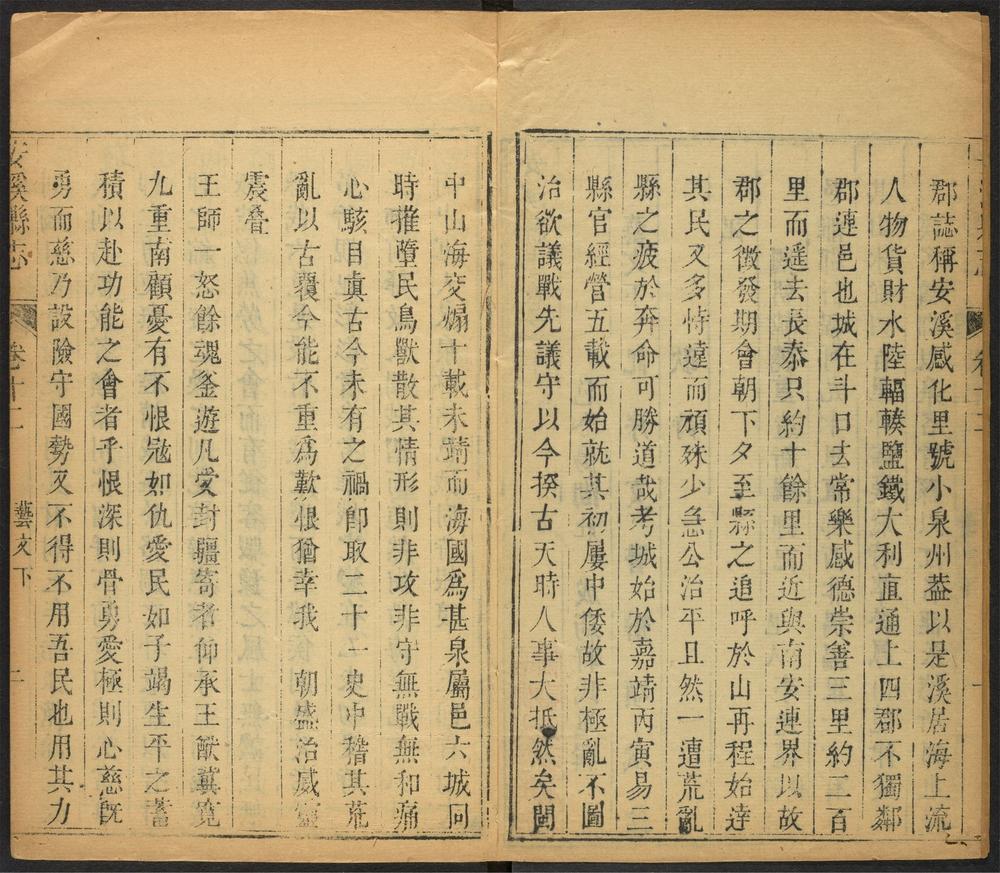 郡誌稱安溪感化里號小泉州葢以是溪居海上流
人物貨財水陸輻輳鹽鐵大利直通上四郡不獨鄰
郡連邑也城在斗口去常樂感德崇善三里約二百
里而遥去長泰只約十餘里而近與南安連界以故
郡之徵發期會朝下夕至縣之追呼於山再程始逹
其民又多恃遠而頑殊少急公治平且然一遭荒亂
縣之疲於奔命可勝道哉考城始於嘉靖丙寅易三
縣官經營五載而始就其初屢中倭故非極亂不圖
治欲議戰先議守以今揆古天時人事大抵然矣閩
中山海交煽十載未靖而海國為甚泉屬邑六城同
時摧墮民鳥獸散其情形則非攻非守無戰無和痛
心駭目眞古今未有之禍卽取二十一史中稽其荒
亂以古覆今能不重爲歎恨猶幸我 朝盛治威靈
震疊
王師一怒餘魂釜遊凡受封疆寄者仰承王猷冀寬
九重南顧憂有不恨冦如仇愛民如子竭生平之蓄
積以赴功能之會者乎恨深則骨勇愛極則心慈旣
勇而慈乃設險守國勢又不得不用吾民也用其力
安溪縣志
卷十二
藝文下
二